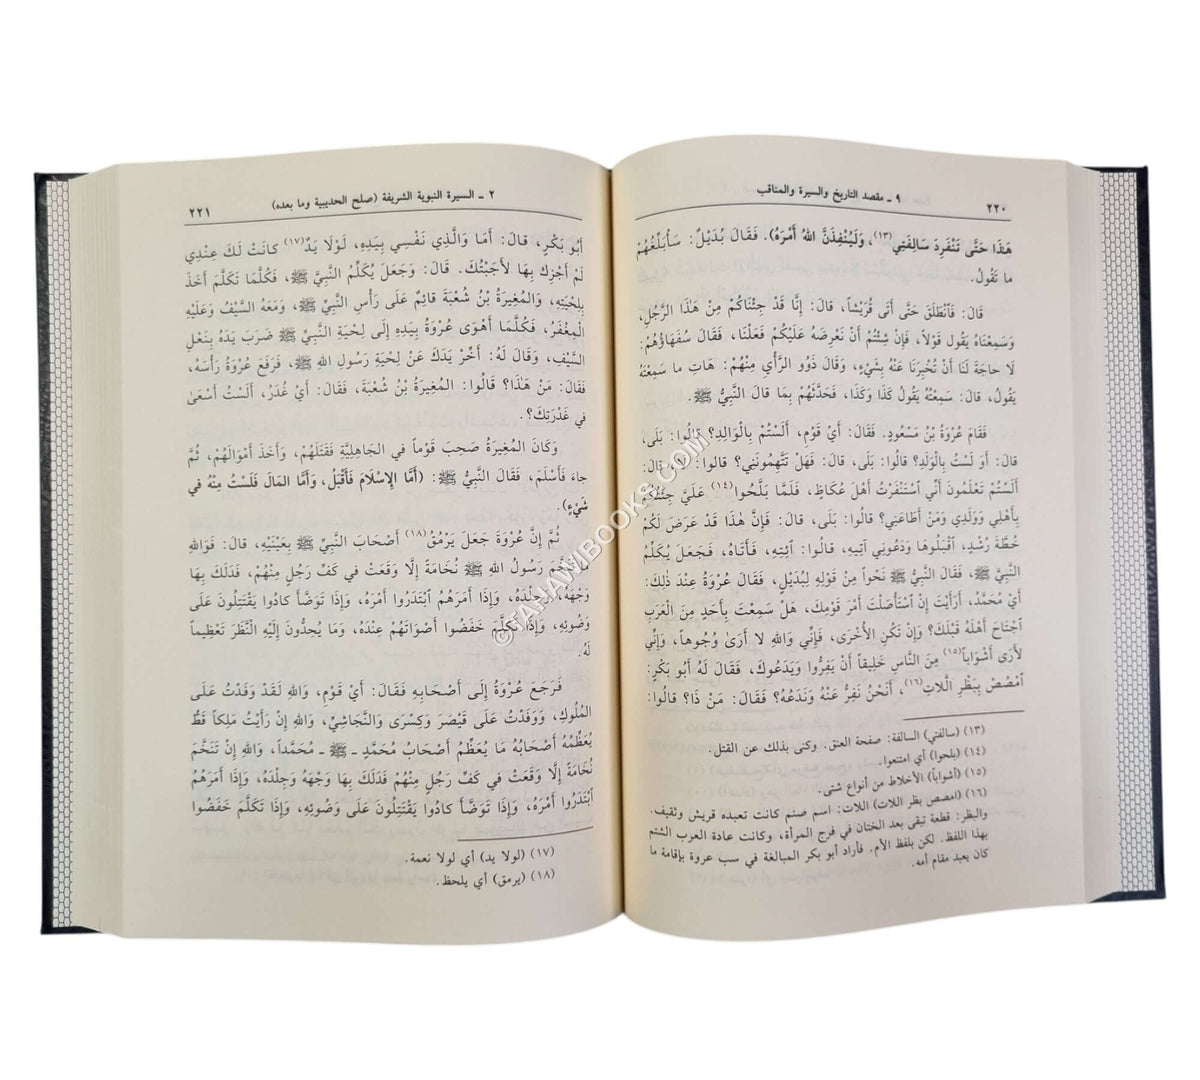 ٩ ـ مقصد التاريخ والسيرة والمناقب
٢٢٠
هٰذَا حَتَّى تَنْفَرِدَ سَالِفَتِي(١٣)، وَلَيُنْفِذَنَّ اللهُ أَمْرَهُ). فَقَالَ بُدَيْلٌ: سَأُبَلِّغُهُمْ
ما تَقُولُ.
قَالَ: فَٱنْطَلَقَ حَتَّى أَتى قُرَيْشاً، قالَ: إِنَّا قَدْ جِئْنَاكُمْ مِنْ هٰذَا الرَّجُلِ،
وَسَمِعْنَاهُ يَقُول قَوْلاً، فَإِنْ شِئْتُمْ أَنْ نَعْرِضَهُ عَلَيْكُمْ فَعَلْنَا، فَقَالَ سُفَهَاؤُهُمْ:
لَا حاجَةَ لَنَا أَنْ تُخْبِرَنَا عَنْهُ بِشَيْءٍ، وَقالَ ذَوُو الرَّأْيِ مِنْهُمْ: هَاتِ ما سَمِعْتَهُ
يَقُولُ، قالَ: سَمِعْتُهُ يَقُولُ كَذَا وَكَذَا، فَحَدَّثَهُمْ بِمَا قالَ النَّبِيُّ ﷺ.
فَقَامَ عُرْوَةُ بْنُ مَسْعُودٍ. فَقَالَ: أَيْ قَوْمِ، أَلَسْتُمْ بِالْوَالِدِ؟ قالُوا: بَلَى،
قالَ: أَوَ لَسْتُ بِالْوَلَدِ؟ قالُوا: بَلَى، قالَ: فَهَلْ تَتَّهِمُونَنِي؟ قالوا: لَا، قالَ:
أَلَسْتُمْ تَعْلَمُونَ أَنِّي ٱسْتَنْفَرْتُ أَهْلَ عُكاظَ، فَلَمَّا بَلَّحُوا(١٤) عَلَيَّ جِئْتُكُمْ
بِأَهْلِي وَوَلَدِي وَمَنْ أَطَاعَنِي؟ قالُوا: بَلَى، قالَ: فَإِنَّ هٰذَا قَدْ عَرَضَ لَكُمْ
خُطَّةَ رُشْدٍ، اقْبَلُوهَا وَدَعُونِي آتِيهِ، قالُوا: ٱئْتِهِ، فَأَتَاهُ، فَجَعَلَ يُكَلِّمُ
النَّبِيَّ ﷺ، فَقَالَ النَّبِيُّ ﷺ نَحْواً مِنْ قَوْلِهِ لِبُدَيْلٍ، فَقَالَ عُرْوَةُ عِنْدَ ذٰلِكَ:
أَيْ مُحَمَّدُ، أَرَأَيْتَ إِنِ ٱسْتَأْصَلْتَ أَمْرَ قَوْمِكَ، هَلْ سَمِعْتَ بِأَحَدٍ مِنَ الْعَرَبِ
اجْتَاحَ أَهْلَهُ قَبْلَكَ؟ وَإِنْ تَكُنِ الْأُخْرَى، فَإِنِّي وَاللهِ لَا أَرَىٰ وُجُوهاً، وَإِنِّي
لَأَرَى أَشْوَاباً(١٥) مِنَ النَّاسِ خَلِيقاً أَنْ يَفِرُّوا وَيَدَعُوكَ، فَقَالَ لَهُ أَبُو بَكْرٍ:
ٱمْصُصْ بِبَظْرِ اللَّاتِ(١٦)، أَنَحْنُ نَفِرُّ عَنْهُ وَنَدَعُهُ؟ فَقَالَ: مَنْ ذَا؟ قالُوا:
(١٣) (سالفتي) السالفة: صفحة العنق. وكنى بذلك عن القتل.
(١٤) (بلحوا) أي امتنعوا.
(١٥) (أشواباً) الأخلاط من أنواع شتى.
(١٦) (امصص بظر اللات) اللات: اسم صنم كانت تعبده قريش وثقيف.
والبظر: قطعة تبقى بعد الختان في فرج المرأة، وكانت عادة العرب الشتم
بهذا اللفظ. لكن بلفظ الأم. فأراد أبو بكر المبالغة في سب عروة بإقامة ما
كان يعبد مقام أمه.
٢ ـ السيرة النبوية الشريفة (صلح الحديبية وما بعده)
٢٢١
أَبُو بَكْرٍ، قالَ: أَمَا وَالَّذِي نَفْسِي بِيَدِهِ، لَوْلَا يَدٌ(١٧) كانَتْ لَكَ عِنْدِي
لَمْ أَجْزِكَ بِهَا لَأَجَبْتُكَ. قالَ: وَجَعَلَ يُكَلِّمُ النَّبِيَّ ﷺ، فَكُلَّمَا تَكَلَّمَ أَخَذَ
بِلِحْيَتِهِ، وَالمُغِيرَةُ بْنُ شُعْبَةَ قائِمٌ عَلَى رَأْسِ النَّبِيِّ ﷺ، وَمَعَهُ السَّيْفُ وَعَلَيْهِ
الْمِغْفَرُ، فَكُلَّمَا أَهْوَى عُرْوَةُ بِيَدِهِ إِلَى لِحْيَةِ النَّبِيِّ ﷺ ضَرَبَ يَدَهُ بِنَعْلِ
السَّيْفِ، وَقالَ لَهُ: أَخِّرْ يَدَكَ عَنْ لِحْيَةِ رَسُولِ اللهِ ﷺ، فَرَفَعَ عُرْوَةُ رَأْسَهُ،
فَقَالَ: مَنْ هٰذَا؟ قَالُوا: المُغِيرَةُ بْنُ شُعْبَةَ، فَقَالَ: أَيْ غُدَرُ، أَلَسْتُ أَسْعَى
في غَدْرَتِكَ؟.
وَكانَ المُغِيرَةُ صَحِبَ قَوْماً في الجَاهِلِيَّةِ فَقَتَلَهُمْ، وَأَخَذَ أَمْوَالَهُمْ، ثُمَّ
جاءَ فَأَسْلَمَ، فَقَالَ النَّبِيُّ ﷺ: (أَمَّا الإِسْلَامَ فَأَقْبَلُ، وَأَمَّا المَالَ فَلَسْتُ مِنْهُ في
شَيْءٍ)
ثُمَّ إِنَّ عُرْوَةَ جَعَلَ يَرْمُقُ(١٨) أَصْحَابَ النَّبِيِّ ﷺ بِعَيْنَيْهِ، قالَ: فَوَاللهِ
تَنَخَّمَ رَسُولُ اللهِ ﷺ نُخَامَةً إِلَّا وَقَعَتْ في كَفِّ رَجُلٍ مِنْهُمْ، فَدَلَكَ بِهَا
وَجْهَهُ وَجِلْدَهُ، وَإِذَا أَمَرَهُمُ ٱبْتَدَرُوا أَمْرَهُ، وَإِذَا تَوَضَّأَ كادُوا يَقْتَتِلُونَ عَلَى
وَضُوئِهِ، وَإِذَا تَكَلَّمَ خَفَضُوا أَصْوَاتَهُمْ عِنْدَهُ، وَمَا يُحِدُّونَ إِلَيْهِ النَّظَرَ تَعْظِيماً
لَهُ.
فَرَجَعَ عُرْوَةُ إِلَى أَصْحَابِهِ فَقَالَ: أَيْ قَوْمِ، وَاللهِ لَقَدْ وَفَدْتُ عَلَى
المُلُوكِ، وَوَفَدْتُ عَلَى قَيْصَرَ وَكِسْرَى وَالنَّجَاشِيِّ، وَاللهِ إِنْ رَأَيْتُ مَلِكاً قَطُّ
يُعَظِّمُهُ أَصْحَابُهُ مَا يُعَظِّمُ أَصْحَابُ مُحَمَّدٍ ـ ﷺ ـ مُحَمَّداً، وَاللهِ إِنْ تَنَخَّمَ
نُخَامَةً إِلَّا وَقَعَتْ في كَفِّ رَجُلٍ مِنْهُمْ فَدَلَكَ بِهَا وَجْهَهُ وَجِلْدَهُ، وَإِذَا أَمَرَهُمُ
ٱبْتَدَرُوا أَمْرَهُ، وَإِذَا تَوَضَّأَ كادُوا يَقْتَتِلُونَ عَلَى وَضُوئِهِ، وَإِذَا تَكَلَّمَ خَفَضُوا
(١٧) (لولا يد) أي لولا نعمة.
(١٨) (يرمق) أي يلحظ.
©TANAWIBOOKS.COM